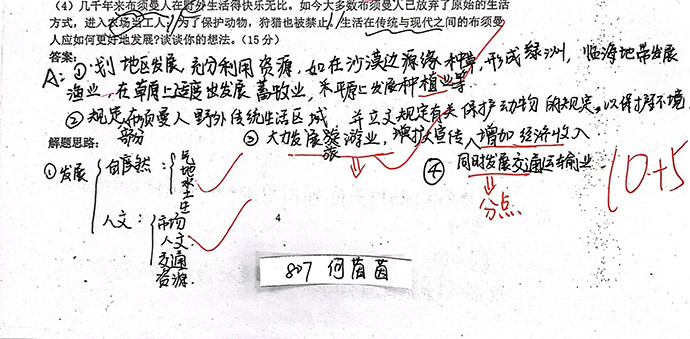 (4) 几千年来布须曼人在野外生活得快乐无比。如今大多数布须曼人已放弃了原始的生活
方式，进入农场当工人，为了保护动物，狩猎也被禁止，生活在传统与现代之间的布须曼
人应如何更好地发展?谈谈你的想法。(15 分)
答案:
A: ① 划地区发展,充分利用资源,如在沙漠边源缘种草,形成绿洲,临海地带发展
渔业,在草原上适度出发展畜牧业,平原上发展种植业等
② 规定布须曼人野外传统生活区域,并立文规定有关保护动物的规定,以保护环境
部分
解题思路:
③ 大力发展旅游业,宣传,增加经济收入
④ 同时发展交通运输业
分点
10+5
① 发展
自然:
气
地
水
土
生
人文:
市场
人文
交通
资源
4
807 何茵茵